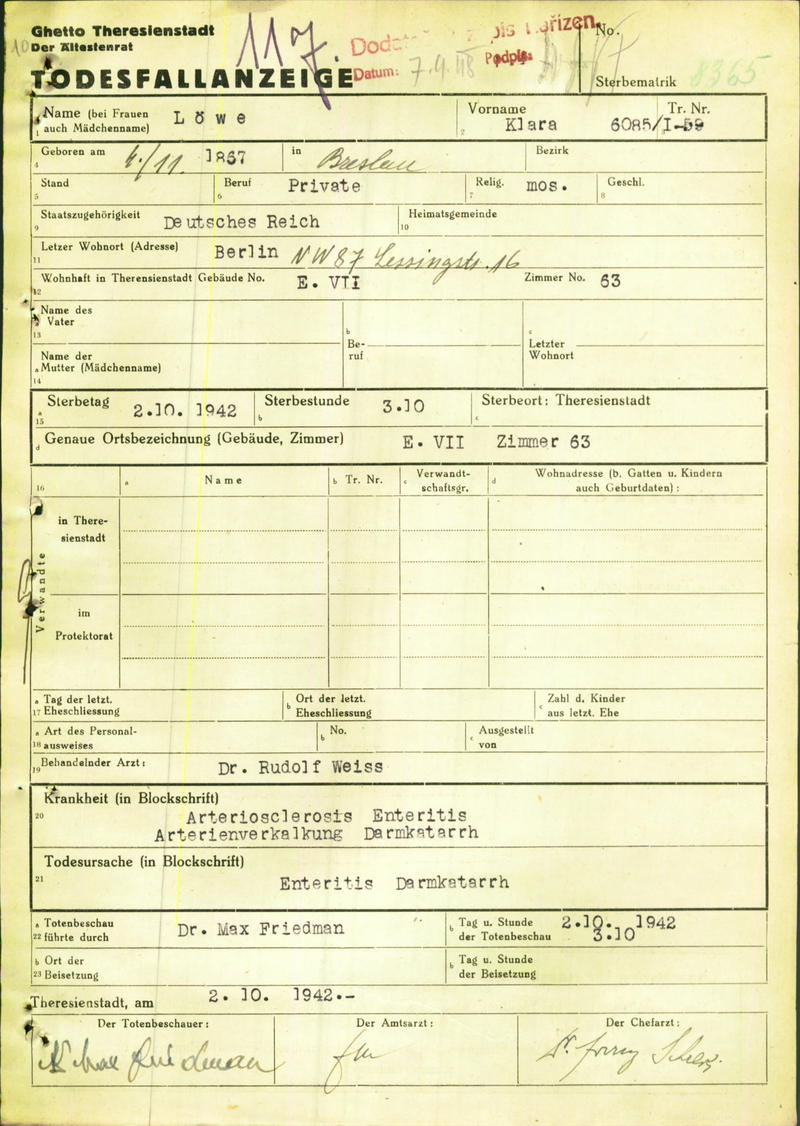 Ghetto Theresienstadt
Der Ältestenrat
TODESFALLANZEIGE
117.
Datum: 7.9.48
No.
Sterbematrik 8365
Name (bei Frauen auch Mädchenname) Löwe
1
Vorname Klara
2
Tr. Nr. 6085/I-59
Geboren am 4./11. 1867
4
in Breslau
Bezirk
Stand
5
Beruf Private
6
Relig. mos.
7
Geschl.
8
Staatszugehörigkeit Deutsches Reich
9
Heimatsgemeinde
10
Letzer Wohnort (Adresse) Berlin NW87 Lessingstr. 16
11
Wohnhaft in Therensienstadt Gebäude No. E. VII
12
Zimmer No. 63
Name des Vater
13
Name der
a Mutter (Mädchenname)
14
b
Be-
ruf
c
Letzter
Wohnort
a Sterbetag 2.10. 1942
15
Sterbestunde 3.10
b
Sterbeort: Theresienstadt
c
d Genaue Ortsbezeichnung (Gebäude, Zimmer) E. VII Zimmer 63
16
a Name
b Tr. Nr.
c Verwandt-
schaftsgr.
d Wohnadresse (b. Gatten u. Kindern
auch Geburtdaten) :
Verwandte
in There-
sienstadt
im
Protektorat
a Tag der letzt.
17 Eheschliessung
b Ort der letzt.
Eheschliessung
c Zahl d. Kinder
aus letzt. Ehe
a Art des Personal-
18 ausweises
b No.
c Ausgestellt
von
19 Behandelnder Arzt: Dr. Rudolf Weiss
Krankheit (in Blockschrift)
20
Arteriosclerosis Enteritis
Arterienverkalkung Darmkatarrh
Todesursache (in Blockschrift)
21
Enteritis Darmkatarrh
a Totenbeschau
22 führte durch
Dr. Max Friedman
b Tag u. Stunde
der Totenbeschau
2.10. 1942
3.10
b Ort der
23 Beisetzung
b Tag u. Stunde
der Beisetzung
Theresienstadt, am 2. 10. 1942.-
Der Totenbeschauer:
Der Amtsarzt:
Der Chefarzt: